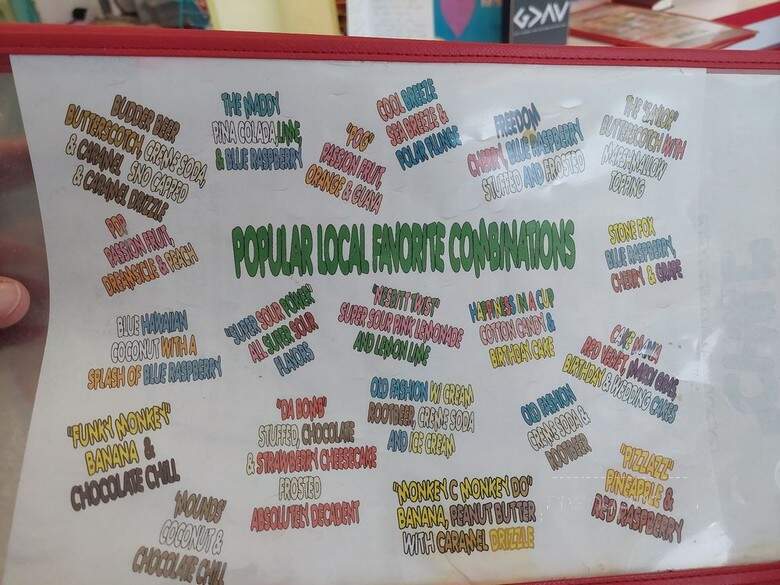 G>ΛV
BUDDER BEER
BUTTERSCOTCH, CREME SODA,
& CARAMEL SNO CAPPED
& CARAMEL DRIZZLE
THE MADDY
PINA COLADA, LIME,
& BLUE RASPBERRY
"POG"
PASSION FRUIT,
ORANGE & GUAVA
COOL BREEZE
SEA BREEZE &
POLAR PLUNGE
FREEDOM
CHERRY, BLUE RASPBERRY
STUFFED AND FROSTED
BUTTERSCOTCH WITH
MARSHMALLOW
TOPPING
POP
PASSION FRUIT,
DREAMSICLE & PEACH
POPULAR LOCAL FAVORITE COMBINATIONS
STONE FOX
BLUE RASPBERRY,
CHERRY & GRAPE
BLUE HAWAIIAN
COCONUT WITH A
SPLASH OF BLUE RASPBERRY
"SUPER SOUR POWER"
ALL SUPER SOUR
FLAVORS
"NESBITT TWIST"
SUPER SOUR PINK LEMONADE
AND LEMON LIME
HAPPINESS IN A CUP
COTTON CANDY &
BIRTHDAY CAKE
CAKE MANIA
RED VELVET, MARDI GRAS,
BIRTHDAY & WEDDING CAKES
"FUNKY MONKEY"
BANANA &
CHOCOLATE CHILL
"DA BOMB"
STUFFED, CHOCOLATE
& STRAWBERRY CHEESECAKE
FROSTED
ABSOLUTELY DECADENT
OLD FASHION W/ CREAM
ROOTBEER, CREME SODA
AND ICE CREAM
OLD FASHION
CREME SODA &
ROOTBEER
"PIZZAZZ"
PINEAPPLE &
RED RASPBERRY
"MOUNDS"
COCONUT &
CHOCOLATE CHILL
"MONKEY C MONKEY DO"
BANANA, PEANUT BUTTER
WITH CARAMEL DRIZZLE